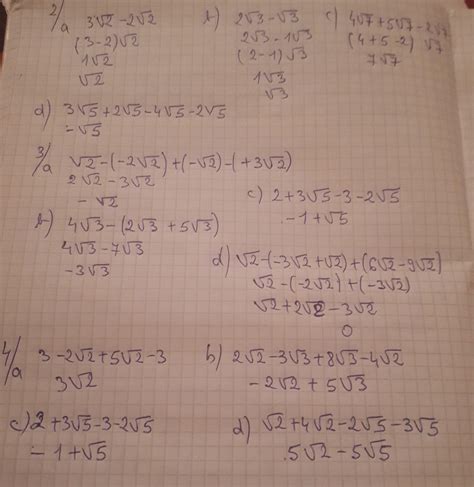 2/a 3√2 -2√2
(3-2)√2
1√2
√2
b) 2√3 -√3
2√3 - 1√3
(2-1)√3
1√3
√3
c) 4√7 +5√7 -2√7
(4+5-2) √7
7√7
d) 3√5 +2√5 -4√5 -2√5
-√5
3/a √2 -(-2√2) +(-√2) -(+3√2)
2√2 -3√2
-√2
b) 4√3 -(2√3 +5√3)
4√3 -7√3
-3√3
c) 2+3√5 -3 -2√5
-1+√5
d) √2 -(-3√2 +√2) +(6√2 -9√2)
√2 -(-2√2) +(-3√2)
√2 +2√2 -3√2
0
4/a 3 -2√2 +5√2 -3
3√2
b) 2√2 -3√3 +8√3 -4√2
-2√2 +5√3
c) 2 +3√5 -3 -2√5
-1+√5
d) √2 +4√2 -2√5 -3√5
5√2 -5√5